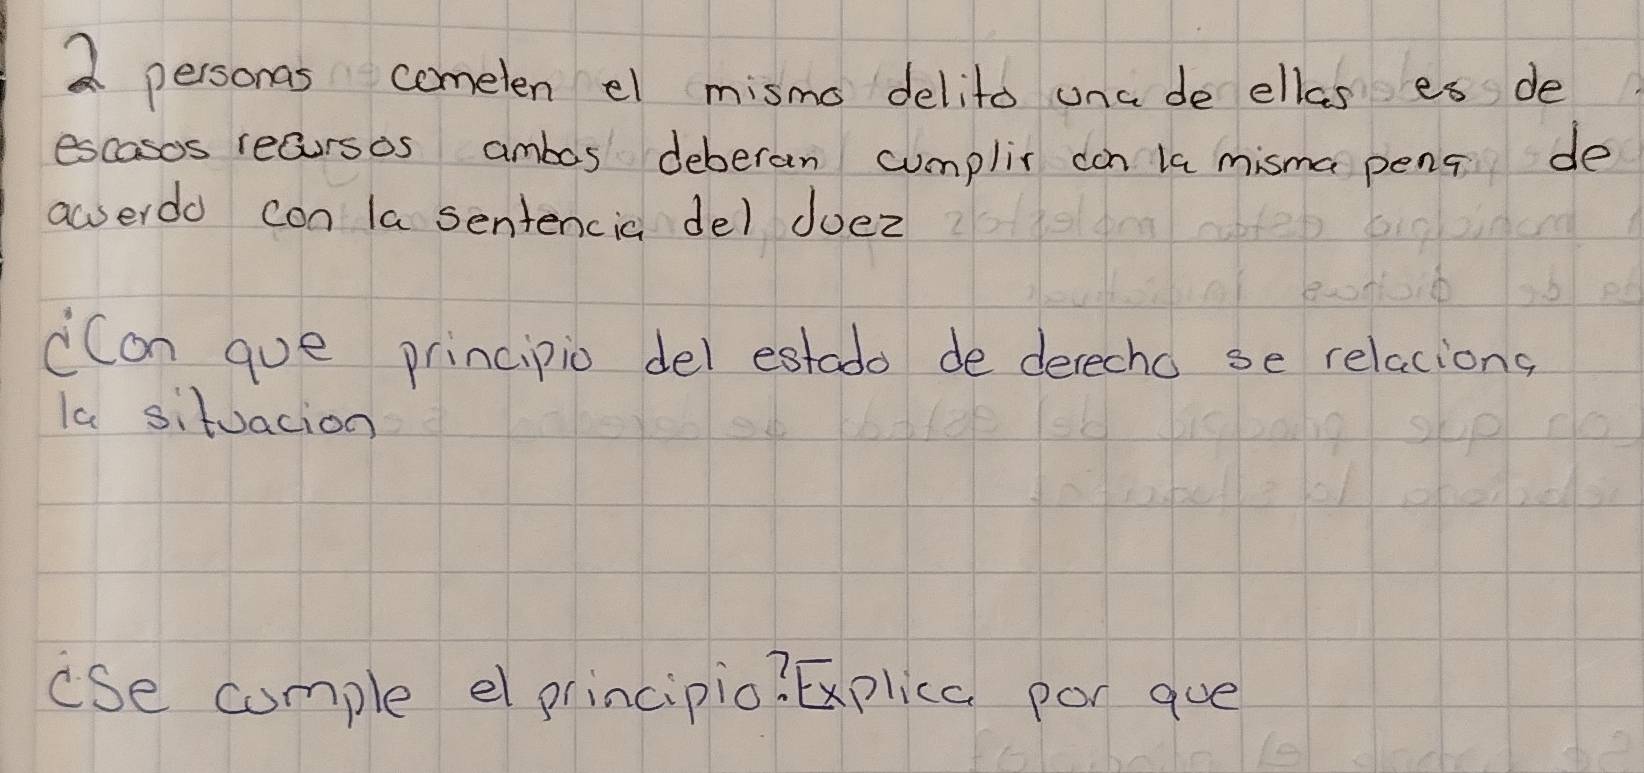 2 personas cometen el mismo delito una de ellas es de
escasos recursos ambas deberan cumplir con la misma pena de
acuerdo con la sentencia del Juez
¿Con que principio del estado de derecho se relaciona
la situacion
¿Se cumple el principio? Explica por que